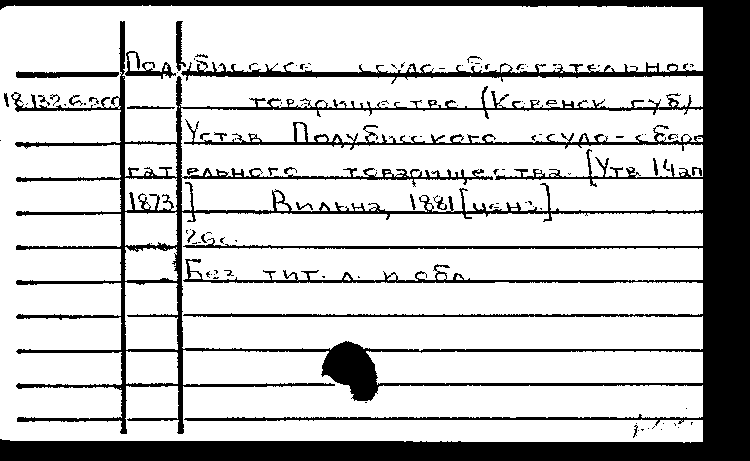 Подубисское ссудо-сберегательное
18.132.6.200 товарищество. (Ковенск губ)
Устав Подубисского ссудо-сбере
гательного товарищества. [Утв. 14 ап
1873] Вильна, 1881 [ценз.].
26с.
Без тит. л. и обл.